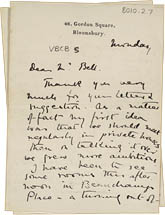 8010.2.7
46, Gordon Square,
Bloomsbury.
VBCB 5
Monday
Dear Mr Bell
Thank you very
much for your letter &
suggestion. As a matter
of fact my first idea
was that we should meet
regularly in private houses
then on talking it over
we grew more ambitious
I have been to see
some rooms this after
noon in Beauchamp
Place - a turning out of